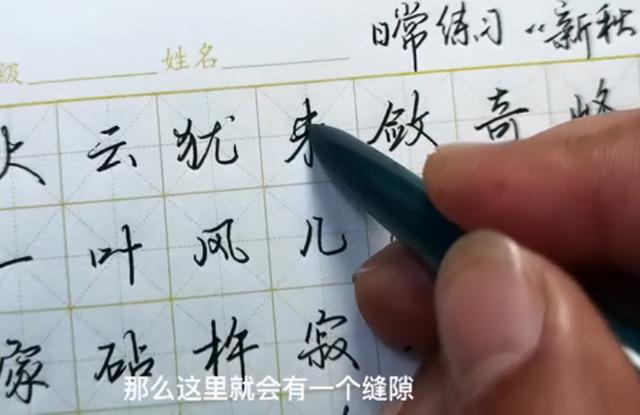 级 姓名 日常练习 《新秋
火云犹未敛奇峰
一叶风几
家砧杵寂
那么这里就会有一个缝隙